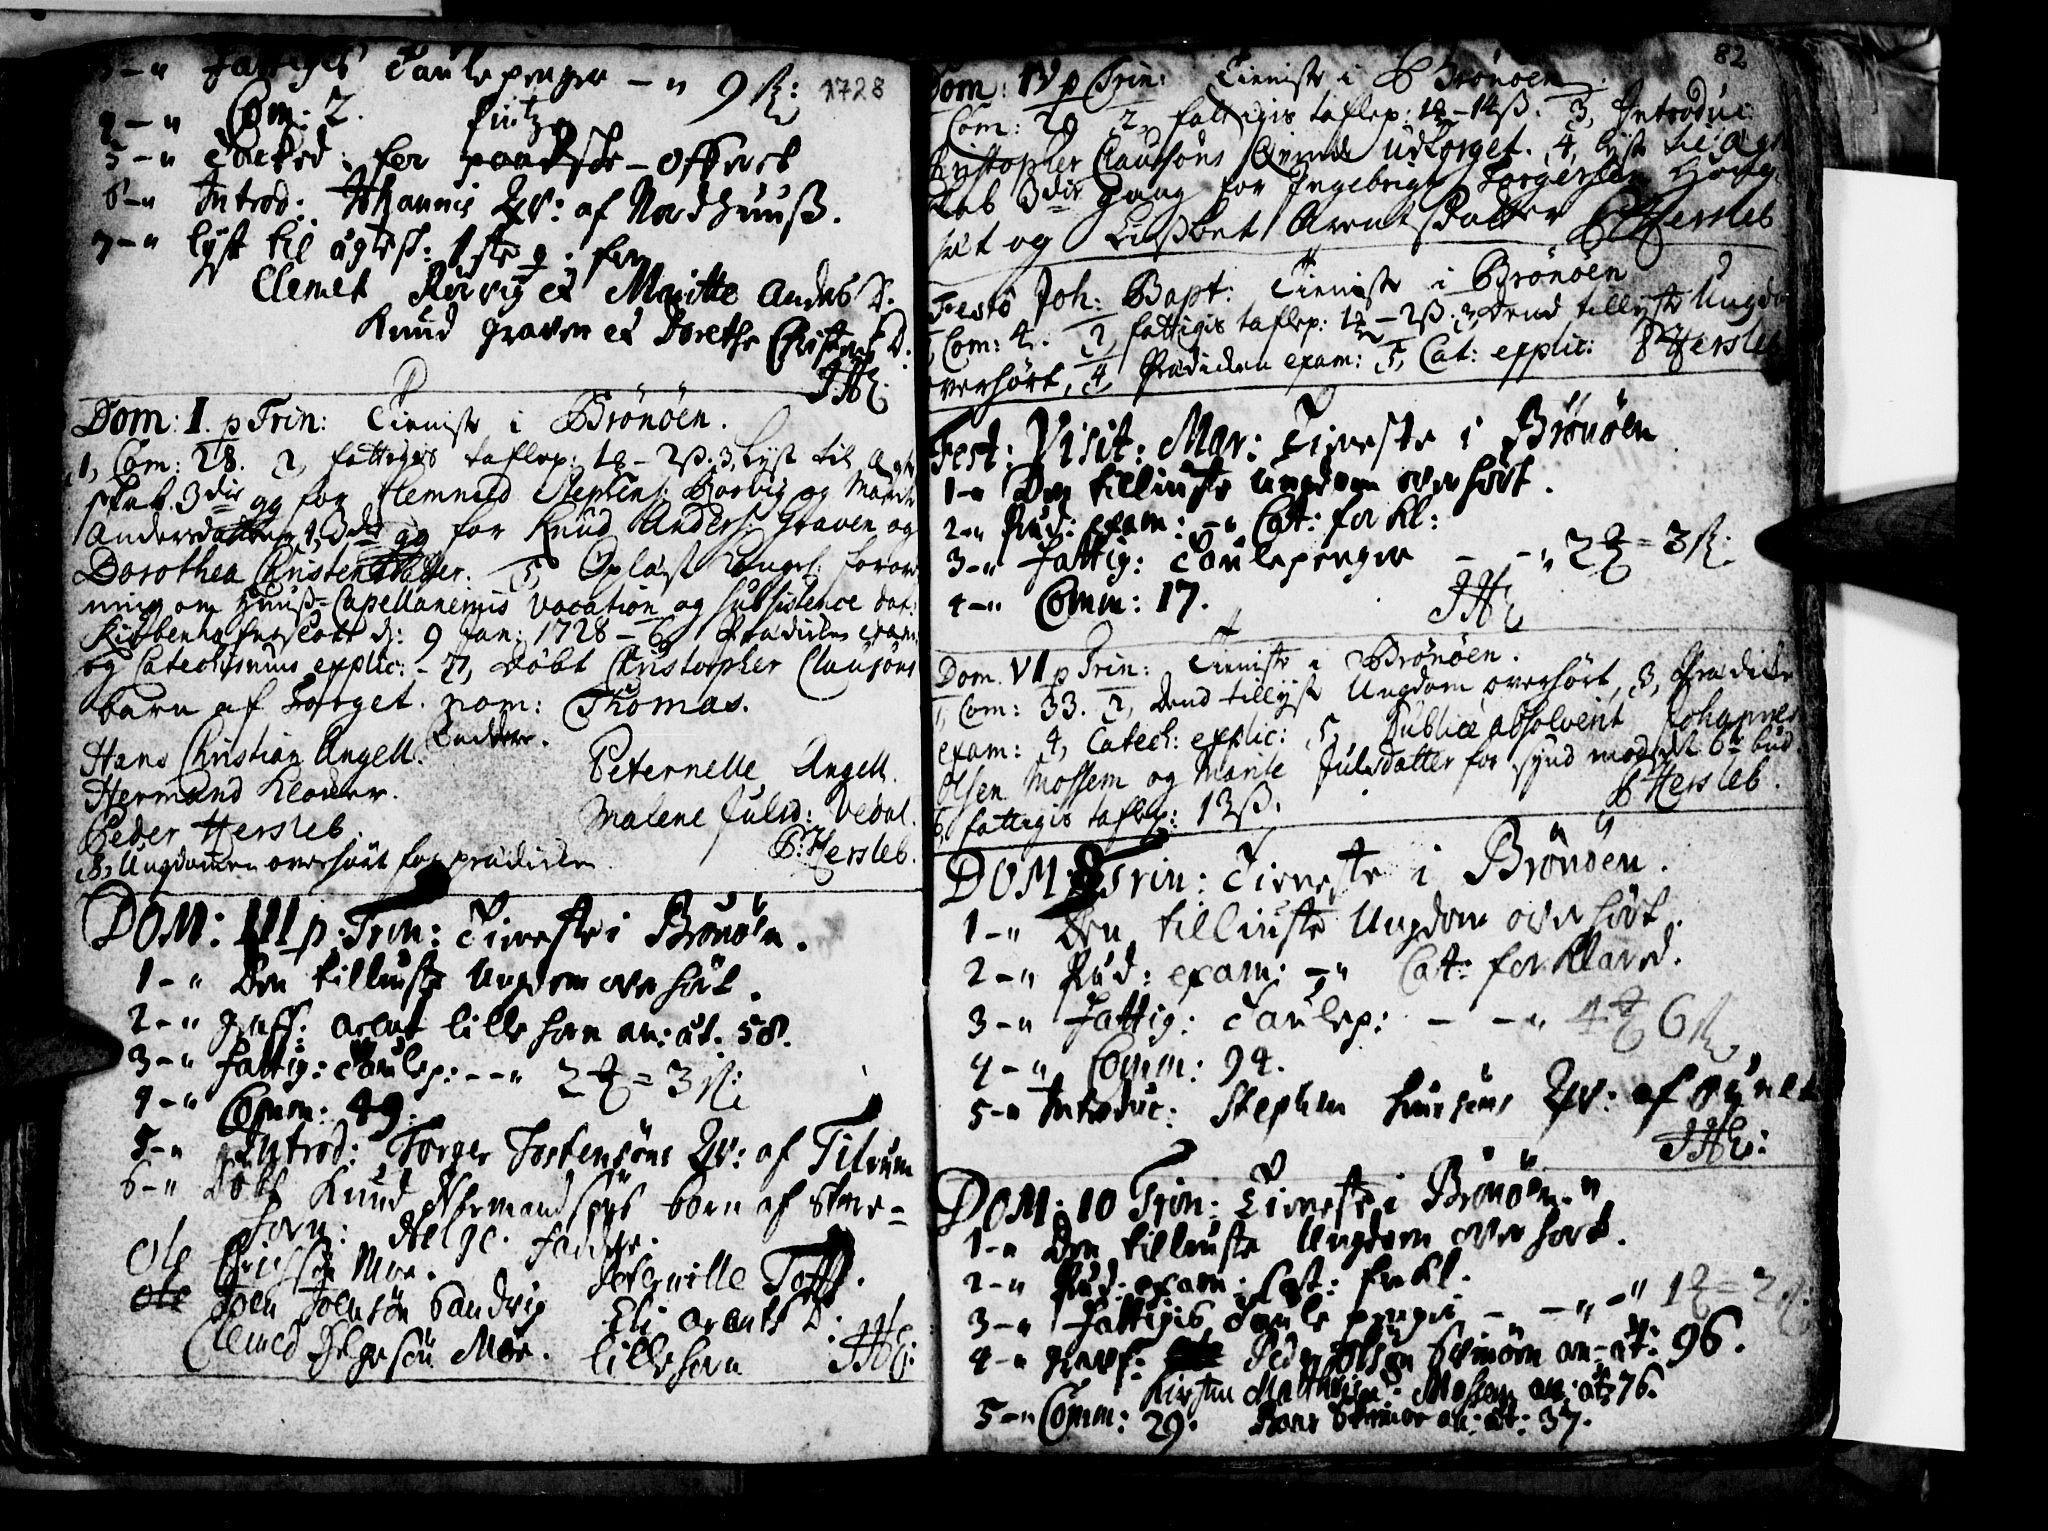 3-" Fattiges Taulepenger - " 9 ß: 1728
4-" Com: 2.
5-" Tacked: for -offeret
6-" Introd: Johannis Qv: af Nordhuuß.
7-" lyst til ægtesk: 1ste g: for
Clemet Rørvig et Maritte Anders D.
Knud Graven et Dorethe Christens D:
JHL:
Dom: I. p Trin: Tieniste i Brönöen.
1, Com: 28. 2, fattigis taflep: 1 - 2ß. 3, Lyst til Ægte
skab 3die gg for Klemmed Stephens: Rörvig og Maritte
Andersdatter, 4, 3die gg for Knud Anders: Graven og
Dorothea Christensdatter. 5, Oplæst Kongel: forord
ning om Huuß-Capellanernis vocation og subsistence dat:
Kiöbenhafns slott d: 9 Jan: 1728 - 6, Prædicken exam:
og Catechismus explic: - 7, Döbt Christopher Clausöns
barn af Torget. nom: Thomas.
Faddere.
Hans Christian Angell.
Peternelle Angell.
Hermand Klower.
Malene Julsd: Vedal.
Peder Hersleb.
8, Ungdommen overhört for prædicken
P: Hersleb.
DOM: III p: Trin: Tieneste i Brönöen.
1-" Den tilliuste Ungdom overhört.
2-" Graff: Arent Lillehorn an: æt. 58.
3-" Fattig: Taulep: - - " 2 = 3 ß:
4-" Comm: 49:
5-" Introd: Torger Tostensöns Qv: af Tilrum
6-" Döbt Knud Hermandsöns barn af
horn: Helge. Faddere.
Ole Erichsön Moe.
Peternille Toft.
Joen Joensön Sandvig
Eli Arents D:
Clemed Helgesön Moe.
Lillehorn
JHL:
82
Dom: IV p Trin: Tieniste i Brönöen.
Com: 29 2, fattigis taflep: 1 - 14ß. 3, Introduc:
Christopher Clausöns Qvinde udi Torget. 4, lyst til Ægte
skab 3die Gang for Ingebrigt Torgersen
og Lisbet Arentsdatter PHersleb
Festo Joh: Bapt: Tieniste i Brönöen
1, Com: 4. 2, fattigis taflep: 1 - 2ß. 3, Dend tillyste Ungdom
overhört, 4, Prædicken exam: 5, Cat: explic: PHersleb
Fest: Visit: Mar: Tieneste i Brönöen
1-" Den tilliuste Ungdom overhört.
2-" Præd: exam: -" Cat: forkl:
3-" Fattig: Taulepenger - -" 2 = 3 ß:
4-" Comm: 17.
JHL
Dom. VI p Trin: Tieniste i Brönöen.
1, Com: 33. 2, Dend tillyst Ungdom overhört, 3, Prædicken
exam: 4, Catech: explic: 5, Publice absolverit Johannes
Olsen Mossem og Marite Julsdatter for synd mod det 6te bud.
6, fattigis taflep: 13ß.
P Hersleb.
DOM: 8 Trin: Tieneste i Brönöen.
1-" Den tilliuste Ungdom overhört.
2-" Præd: exam: -" Cat: forklared.
3-" Fattig: Taulep: - -" 4 6 ß
4-" Comm: 94.
5-" Introduc: Stephen Qv: af
JHL:
DOM: 10 Trin: Tieneste i Brönöen."
1-" Den tilliuste Ungdom overhört.
2-" Præd: exam: Cat: forkl.
3-" Fattigis Taulepenger - -" -" 1 = 2 ß:
4-" Graff: Peder Olsön an: æt: 96.
Kirsten Mathiasd: Mossem an: æt: 76.
5-" Comm: 29: an: æt: 37.